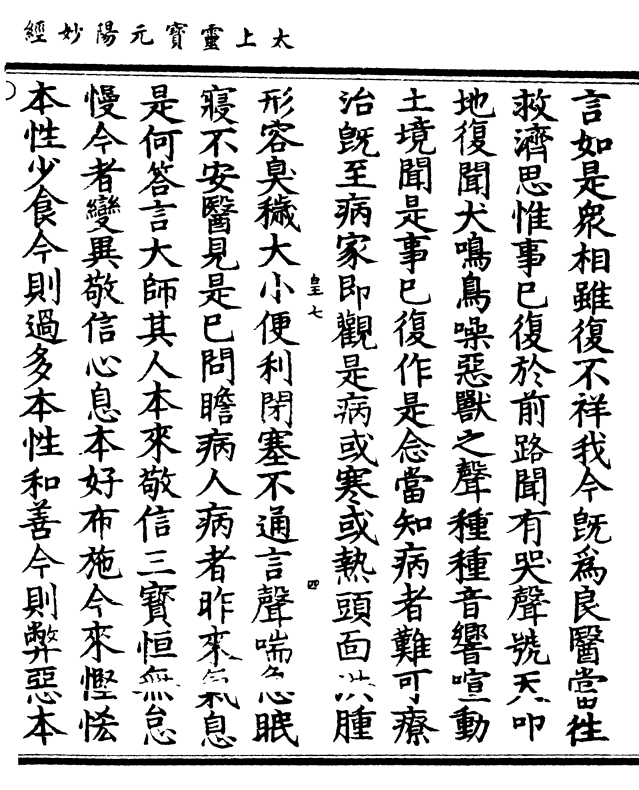 太上靈寳元陽妙經
言如是衆相雖復不祥我今旣爲良醫當往
救濟思惟事已復於前路聞有哭聲號天叩
地復聞犬鳴鳥噪惡獸之聲種種音響喧動
土境聞是事已復作是念當知病者難可療
治旣至病家即觀是病或寒或熱頭面洪腫
皇七
四
形容臭穢大小便利閉塞不通言聲喘急眠
寢不安醫見是已問瞻病人病者昨來氣息
是何答言大師其人本來敬信三寳恒無怠
慢今者變異敬信心息本好布施今來慳悋
本性少食今則過多本性和善今則弊惡本